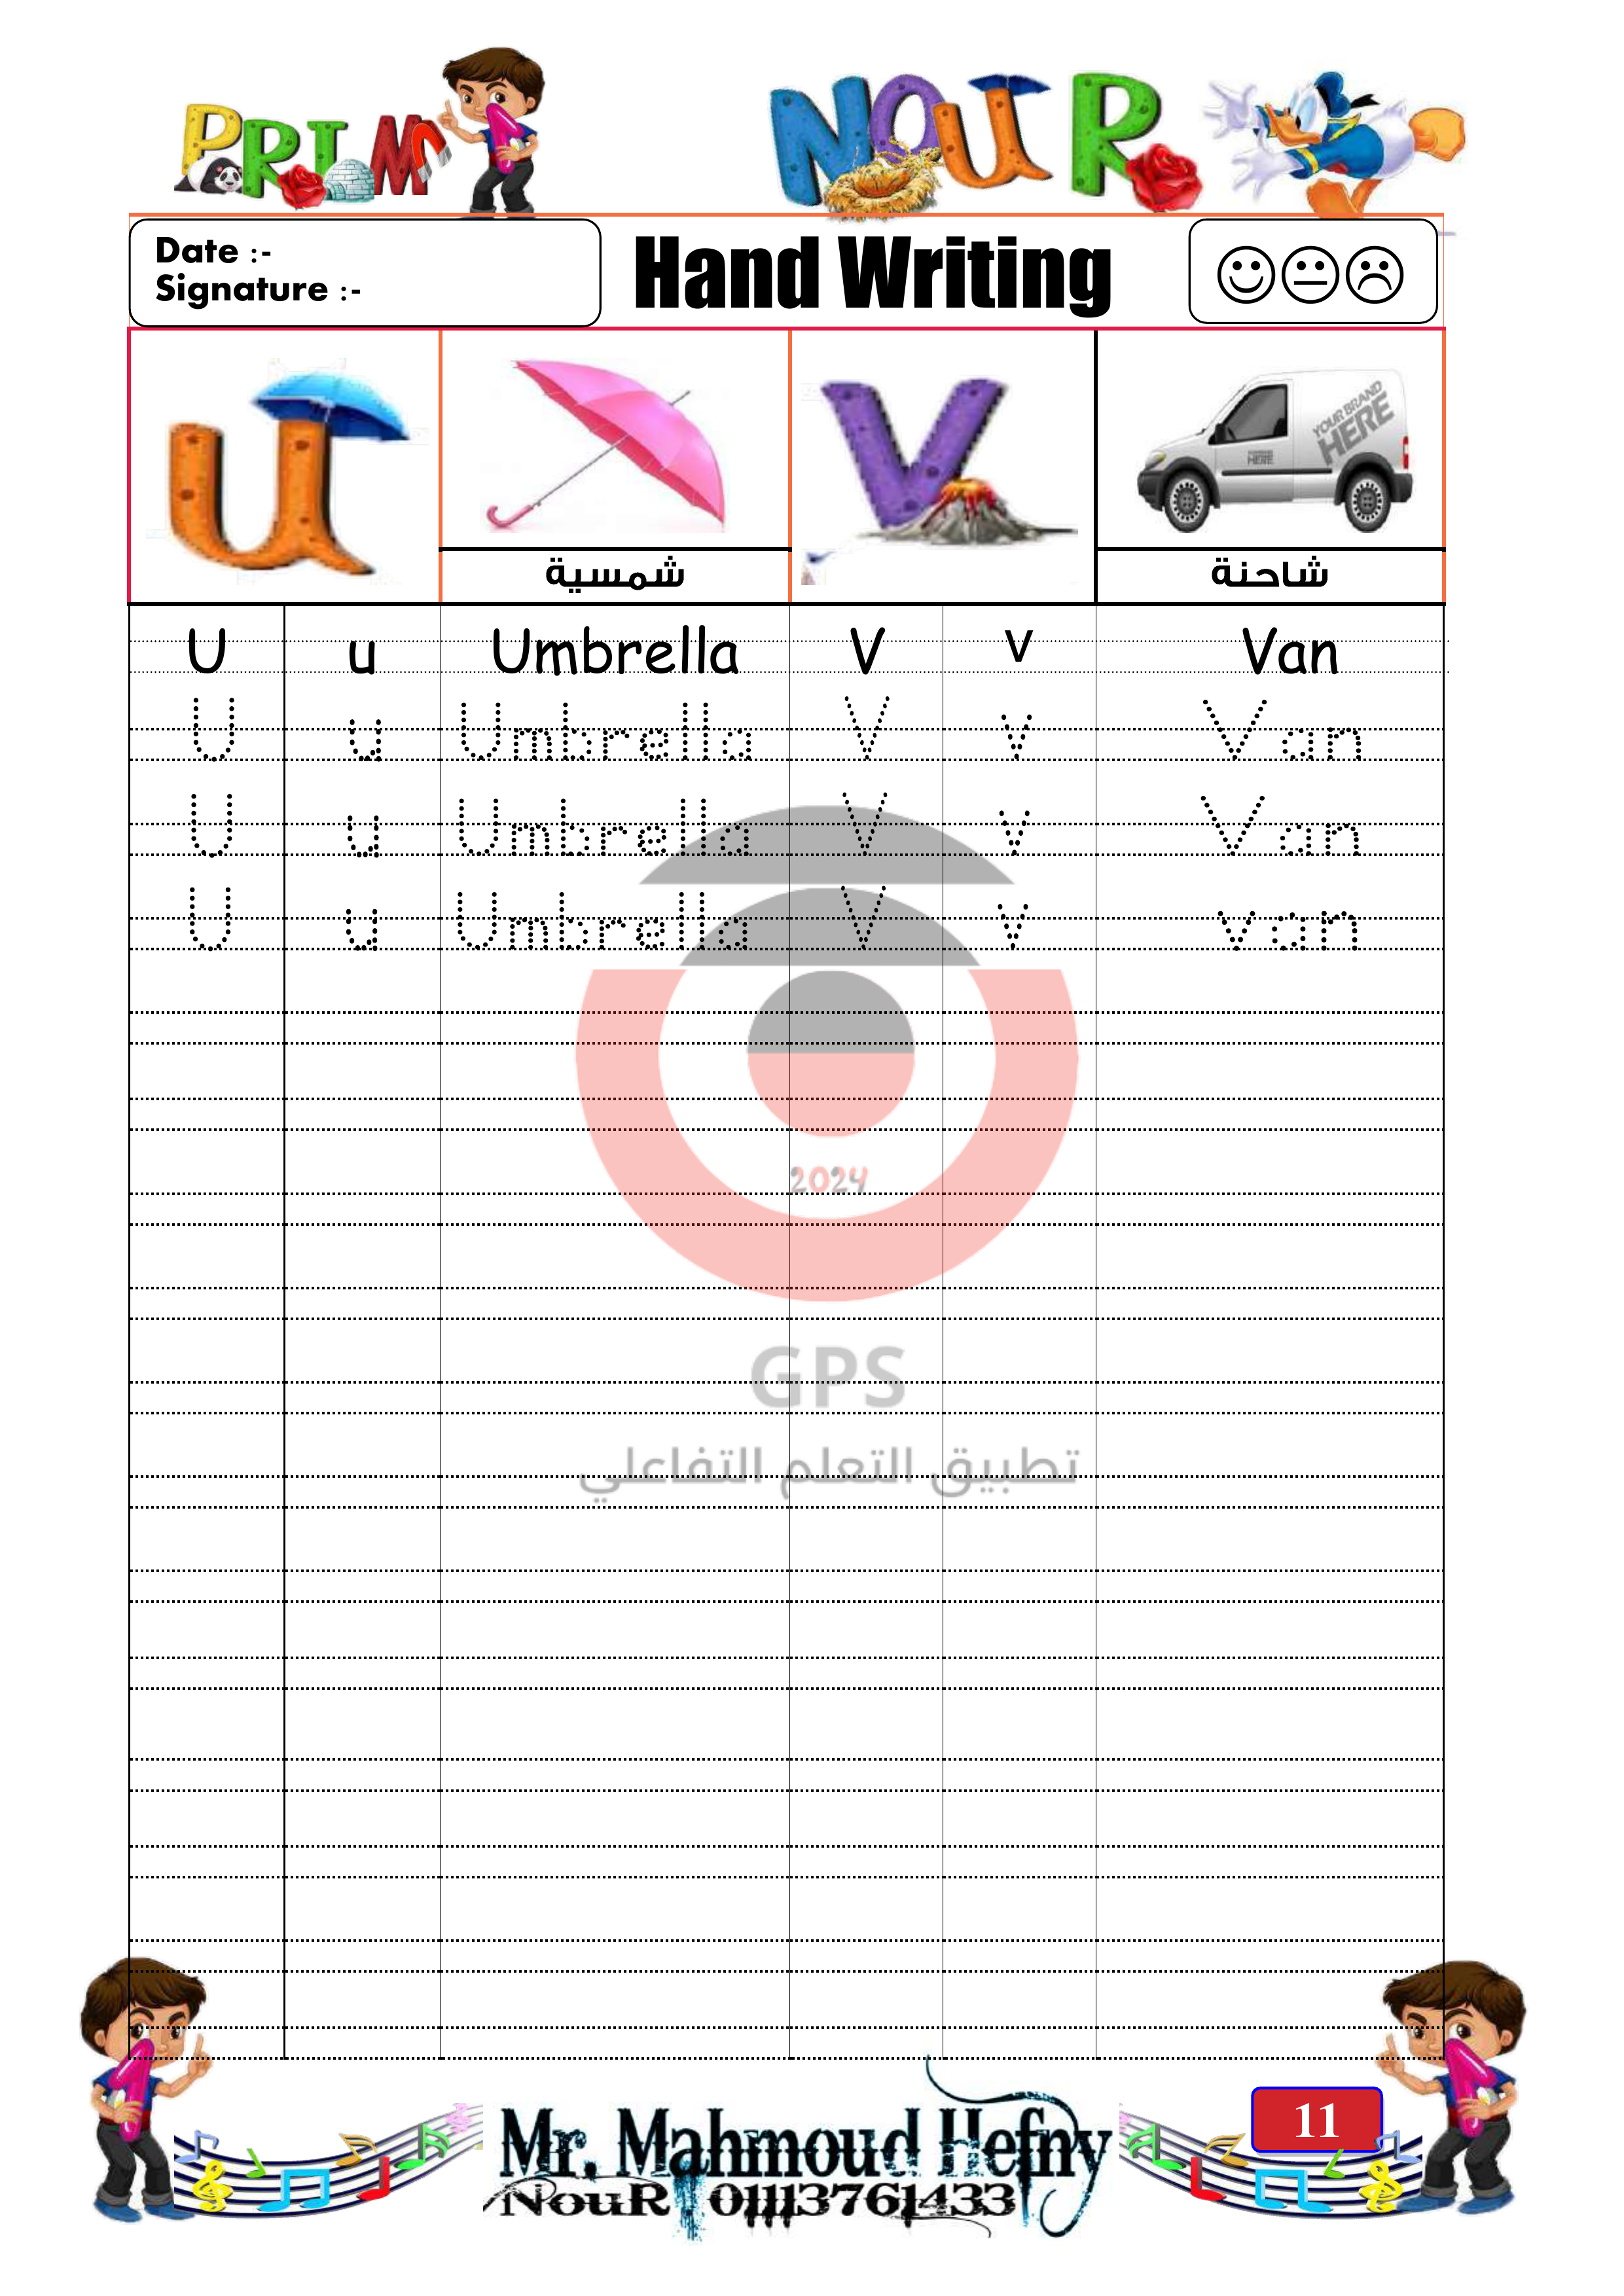 PRIM 1
NOUR
Date :-
Signature :-
Hand Writing
u
v
YOUR BRAND
HERE
HERE
شمسية
شاحنة
U u Umbrella V v Van
U u Umbrella V v Van
U u Umbrella V v Van
U u Umbrella V v van
2024
GPS
تطبيق التعلم التفاعلي
11
Mr. Mahmoud Hefny
NouR. 01113761433